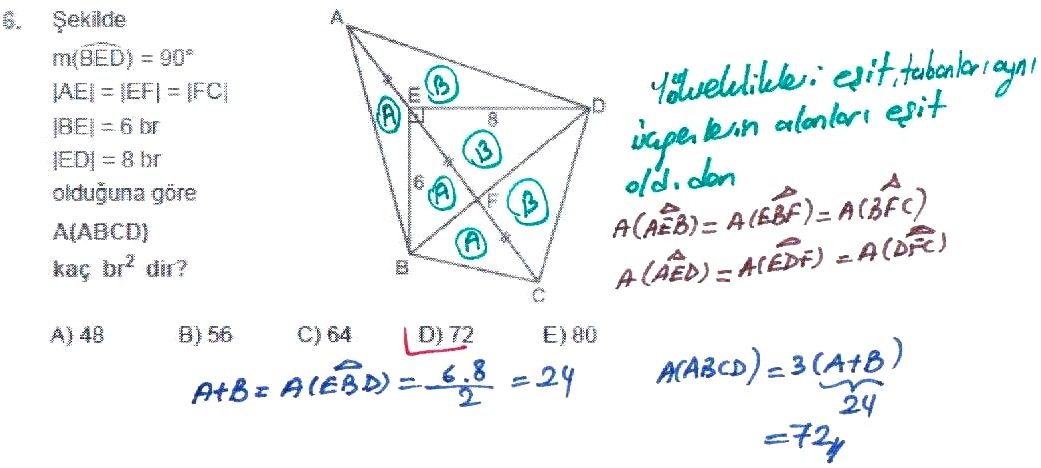 6. Şekilde
m(BED) = 90°
|AE| = |EF| = |FC|
|BE| = 6 br
|ED| = 8 br
olduğuna göre
A(ABCD)
kaç br² dir?
A
B
E
D
A
8
B
6
A
F
B
A
B
C
Yükseklikleri eşit, tabanları aynı
üçgenlerin alanları eşit
old. dan
A(AEB) = A(EBF) = A(BFC)
A(AED) = A(EDF) = A(DFC)
A) 48 B) 56 C) 64 D) 72 E) 80
A+B = A(EBD) = 6.8/2 = 24
A(ABCD) = 3(A+B)
24
= 72